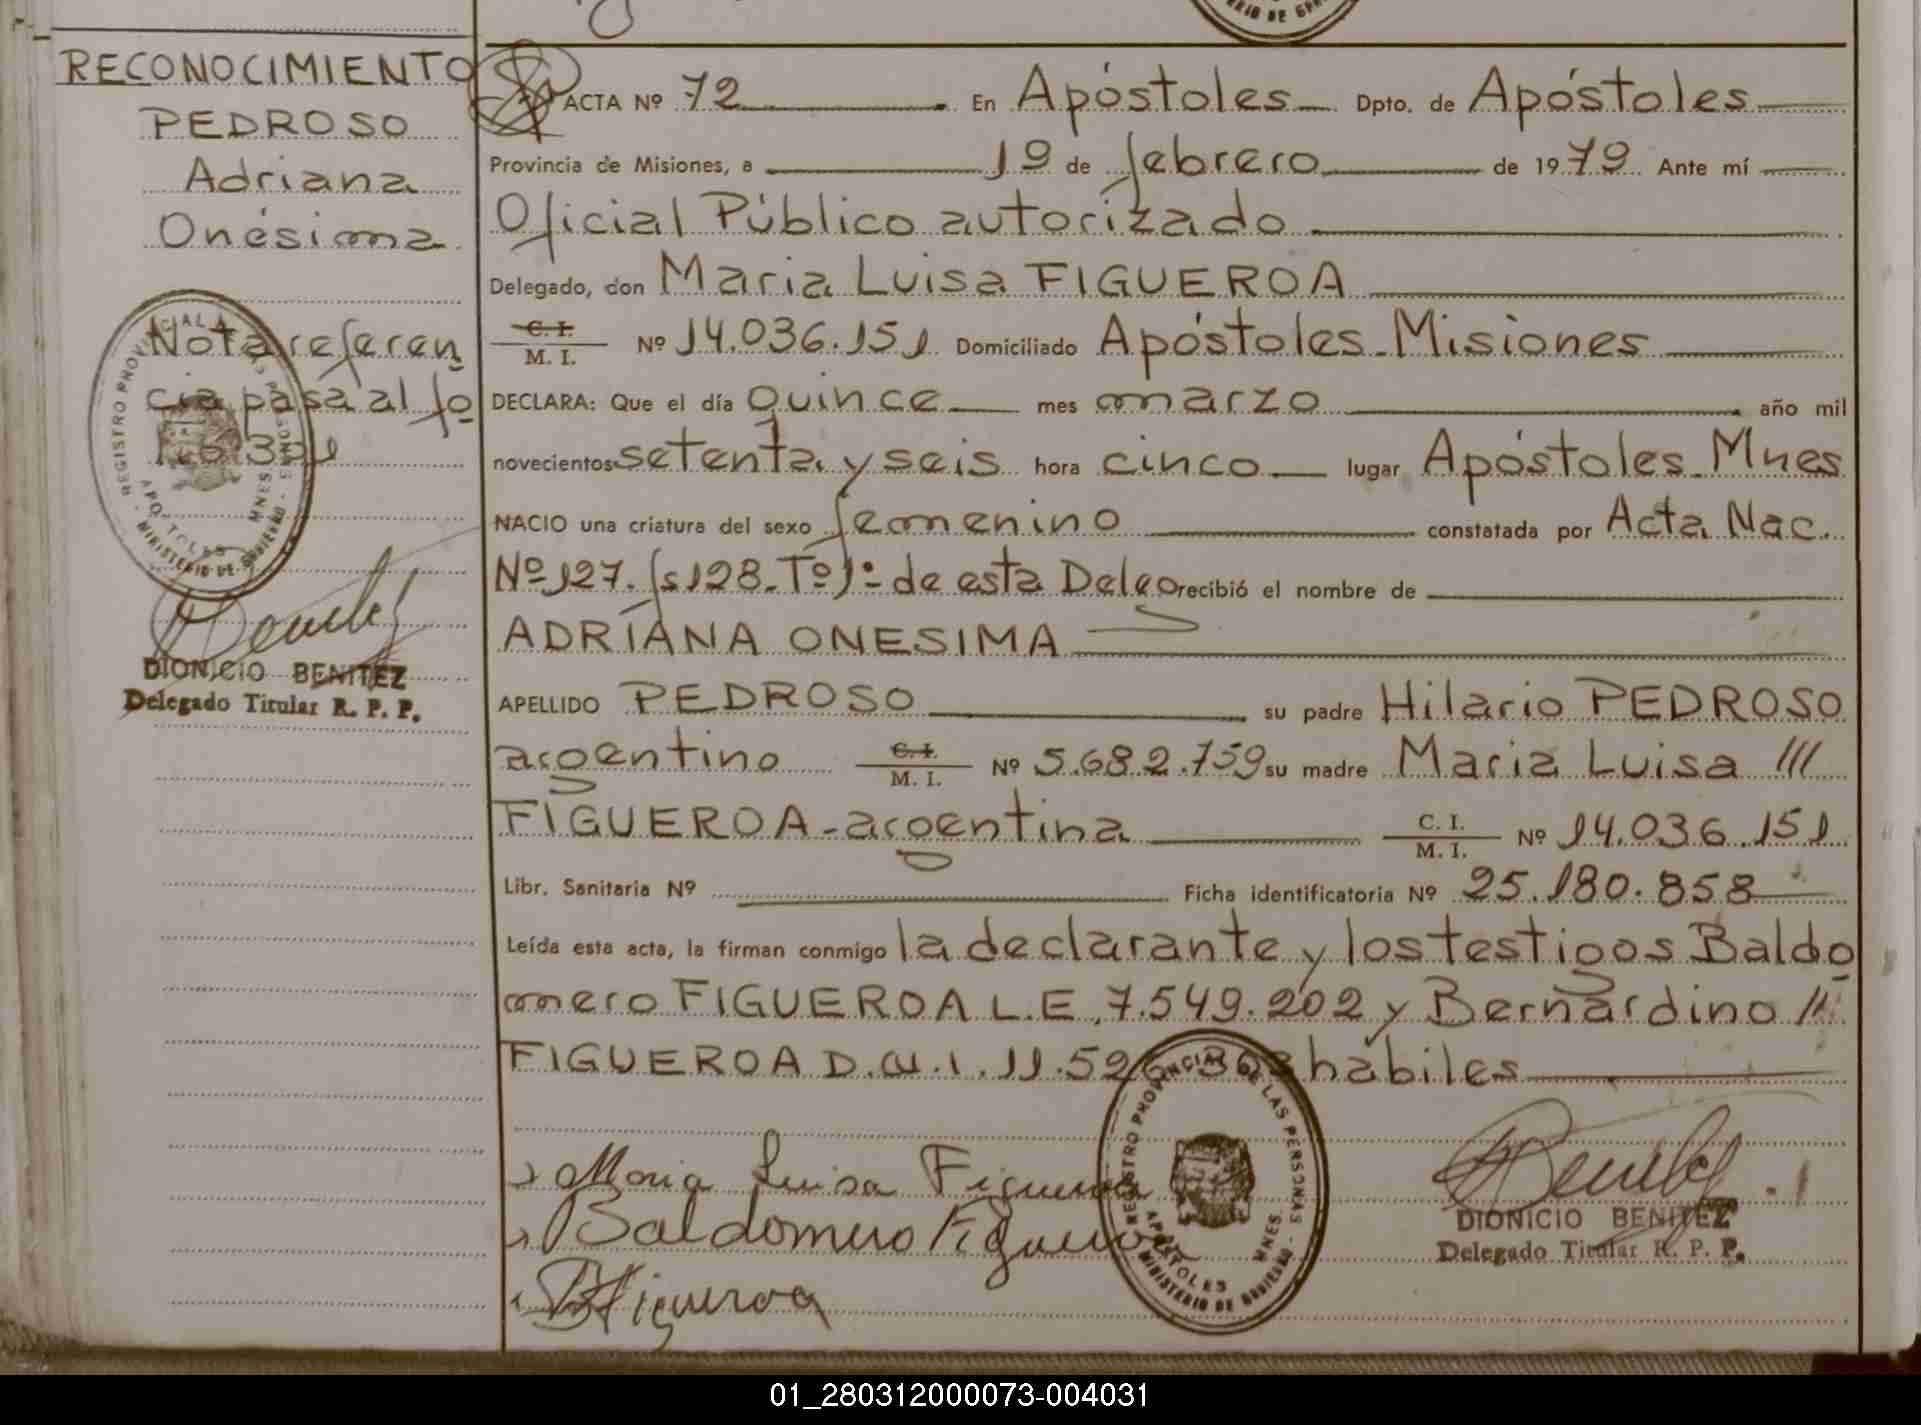 RECONOCIMIENTO
PEDROSO
Adriana
Onésima
Nota referen
cia pasa al fo
DIONICIO BENITEZ
Delegado Titular R. P. P.
ACTA Nº 72 En Apóstoles Dpto. de Apóstoles
Provincia de Misiones, a 19 de febrero de 1979. Ante mí
Oficial Público autorizado
Delegado, don Maria Luisa FIGUEROA
C. I. / M. I. Nº 14.036.151 Domiciliado Apóstoles-Misiones
DECLARA: Que el día quince mes marzo año mil
novecientos setenta y seis hora cinco lugar Apóstoles-Mnes
NACIO una criatura del sexo femenino constatada por Acta Nac.
Nº 127. fs 128-Tº 1º de esta Deleg recibió el nombre de
ADRIANA ONESIMA
APELLIDO PEDROSO su padre Hilario PEDROSO
argentino C. I. / M. I. Nº 5.682.759 su madre Maria Luisa ///
FIGUEROA-argentina C. I. / M. I. Nº 14.036.151
Libr. Sanitaria Nº Ficha identificatoria Nº 25.180.858
Leída esta acta, la firman conmigo la declarante y los testigos Baldo
mero FIGUEROA L.E. 7.549.202 y Bernardino ///
FIGUEROA D.N.I. 11.526.363 hábiles
Maria Luisa Figueroa
Baldomero Figueroa
B Figueroa
REGISTRO PROVINCIAL DE LAS PERSONAS - MINISTERIO DE GOBIERNO
APOSTOLES MNES.
DIONICIO BENITEZ
Delegado Titular R. P. P.
01_280312000073-004031